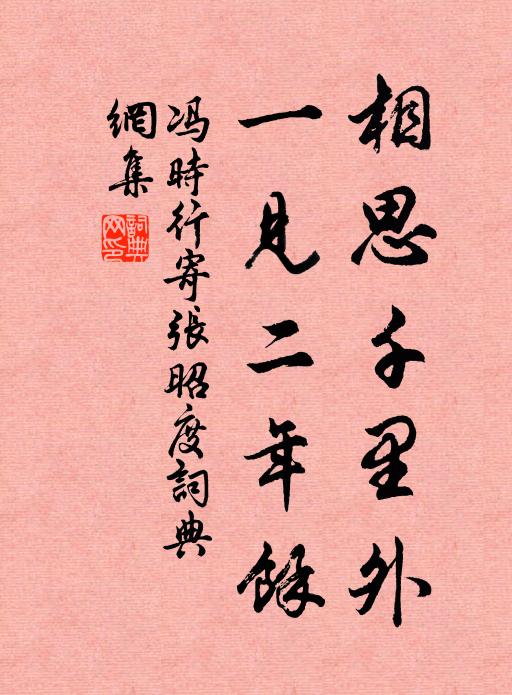 相思千里外
一見二年餘
冯時行寄張昭度詞典
網集
詞典網印